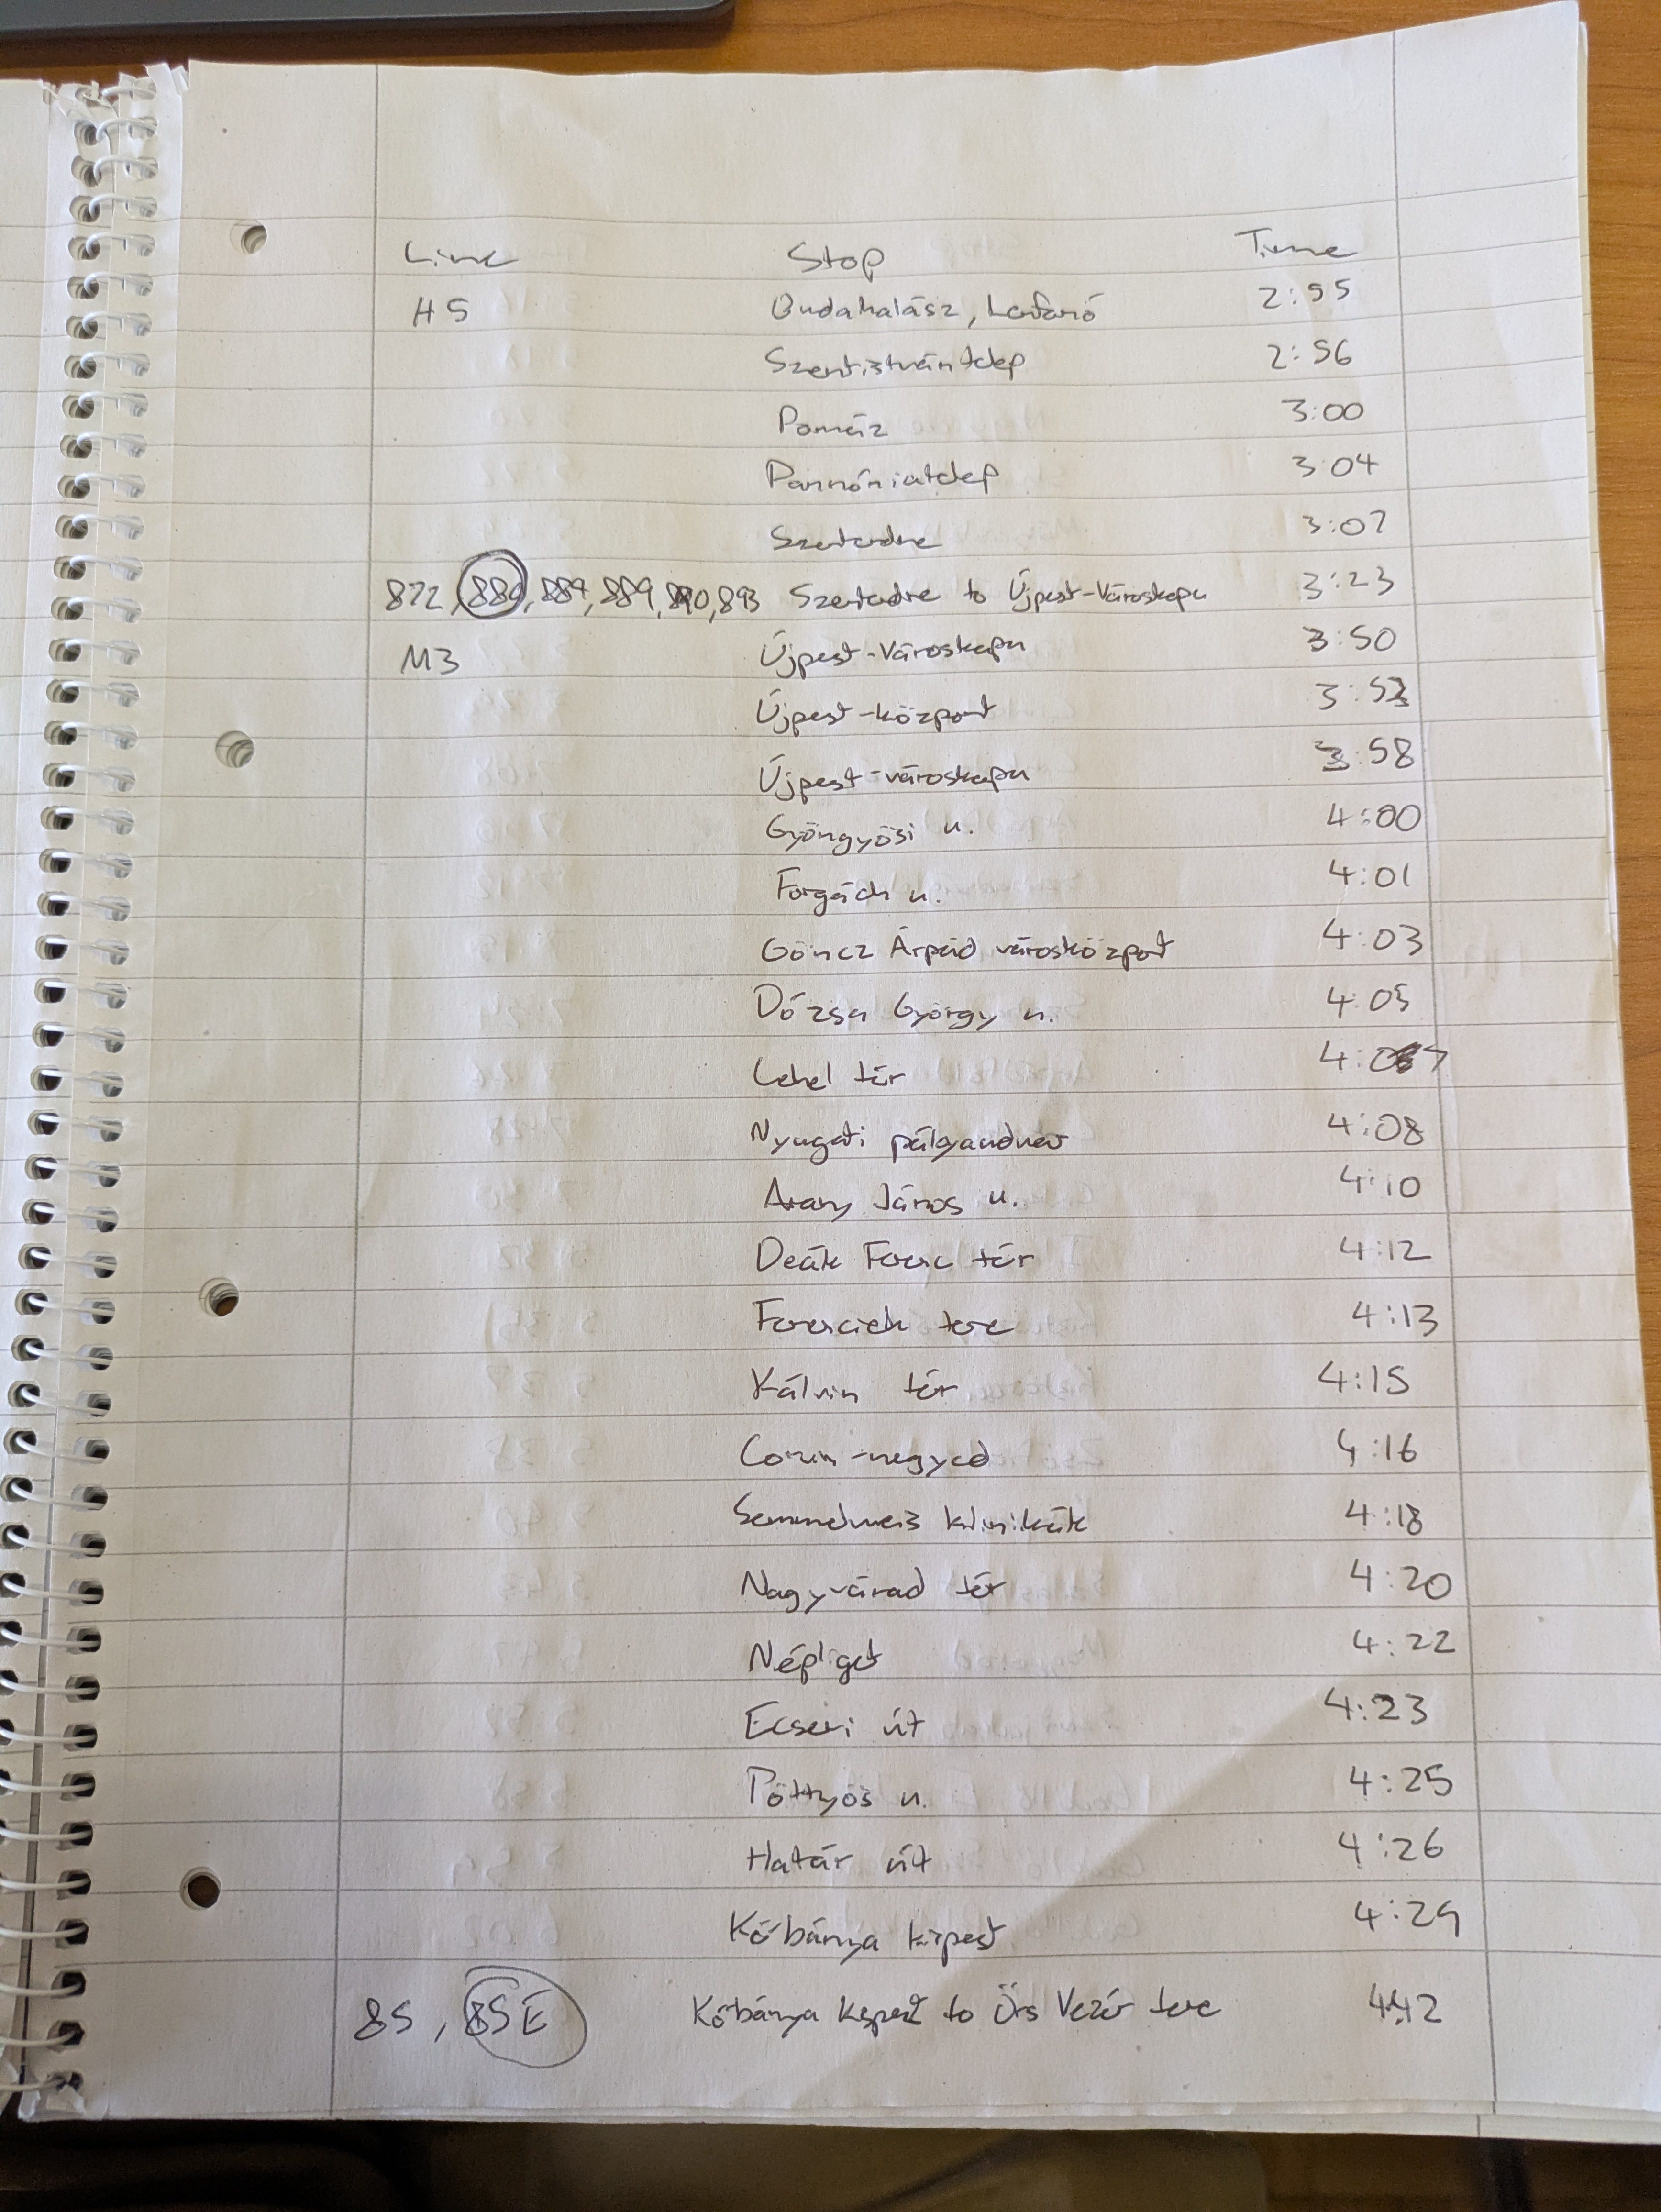 Line Stop Time
H5 Budakalász, Lenfonó 2:55
Szentistvántelep 2:56
Pomáz 3:00
Pannóniatelep 3:04
Szentendre 3:07
872, 880, 884, 889, 890, 893 Szentendre to Újpest-Városkapu 3:23
M3 Újpest-Városkapu 3:50
Újpest-központ 3:53
Újpest-városkapu 3:58
Gyöngyösi u. 4:00
Forgách u. 4:01
Göncz Árpád városközpont 4:03
Dózsa György u. 4:05
Lehel tér 4:07
Nyugati pályaudvar 4:08
Arany János u. 4:10
Deák Ferenc tér 4:12
Ferenciek tere 4:13
Kálvin tér 4:15
Corvin-negyed 4:16
Semmelweis klinikák 4:18
Nagyvárad tér 4:20
Népliget 4:22
Ecseri út 4:23
Pöttyös u. 4:25
Határ út 4:26
Kőbánya kispest 4:29
85, 85E Kőbánya kispest to Örs Vezér tere 4:42